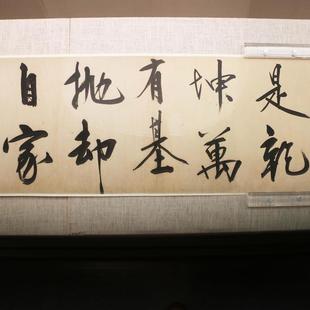 是乾
坤萬
有基
抛却
自家